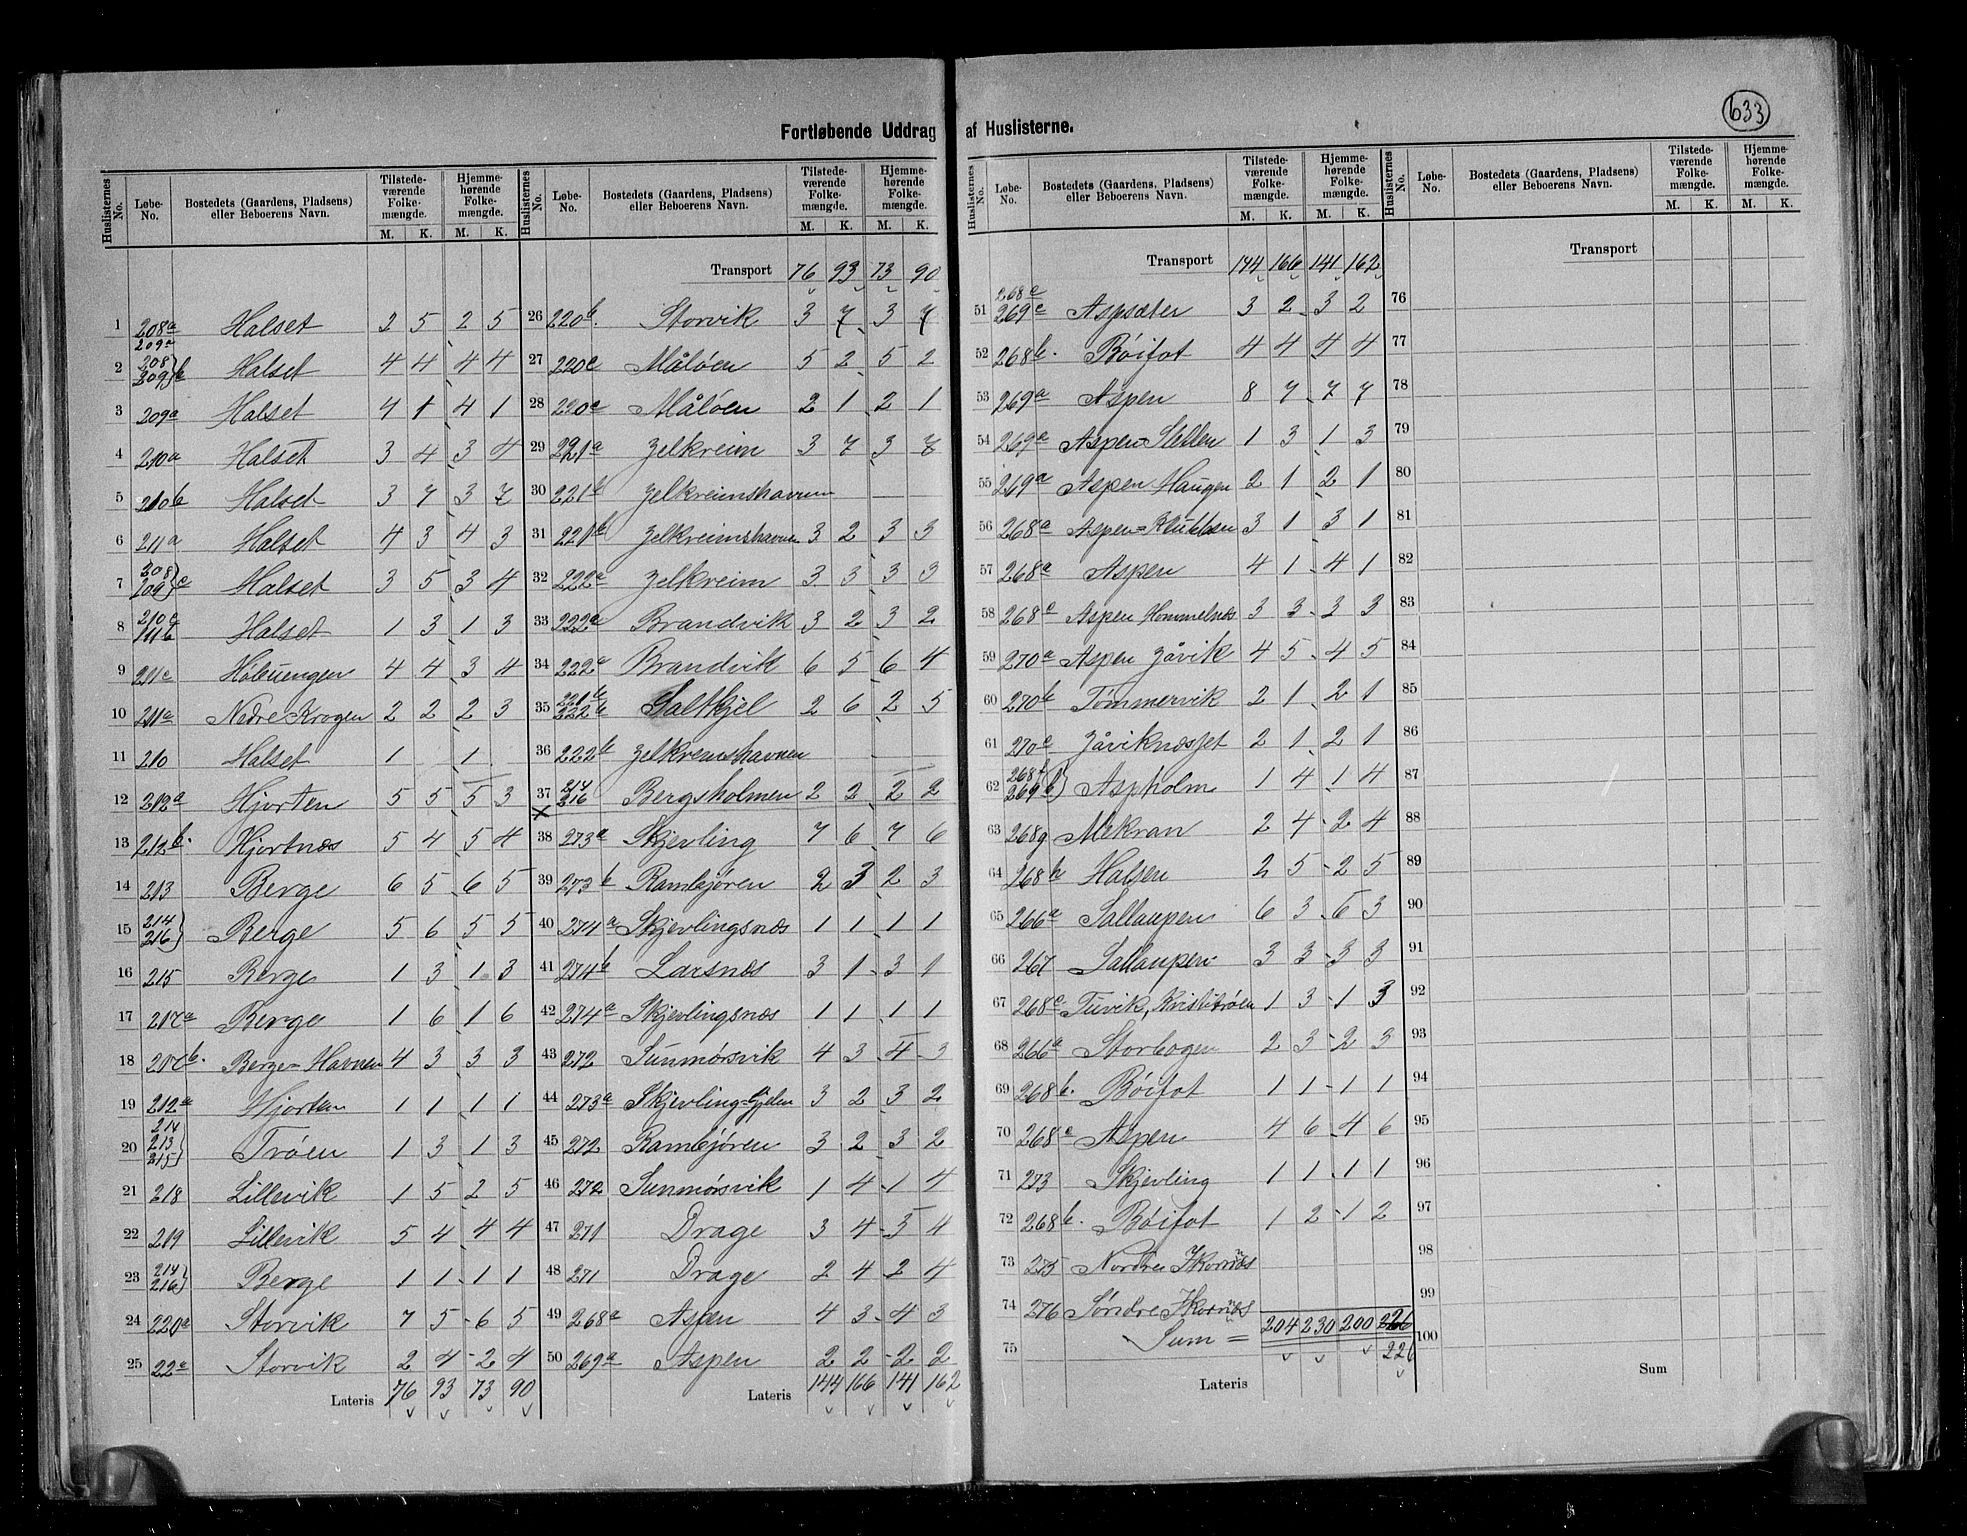 633
Fortløbende Uddrag af Huslisterne.
Huslisternes No. Løbe-No. Bostedets (Gaardens, Pladsens) eller Beboerens Navn. Tilstede-værende Folke-mængde. M. K. Hjemme-hørende Folke-mængde. M. K.
1 208a 209a Halset 2 5 2 5
2 208 209 } b Halset 4 4 4 4
3 209a Halset 4 1 4 1
4 210a Halset 3 4 3 4
5 210b Halset 3 7 3 7
6 211a Halset 4 3 4 3
7 208 209 } c Halset 3 5 3 4
8 210c 111b Halset 1 3 1 3
9 211c 4 4 3 4
10 211a Nedre-Krogen 2 2 2 3
11 210 Halset 1 1
12 212a Hjorten 5 5 5 3
13 212b. Hjortnæs 5 4 5 4
14 213 Berge 6 5 6 5
15 214 216 } Berge 5 6 5 5
16 215 Berge 1 3 1 3
17 217a Berge 1 6 1 6
18 217b. Berge-Havnen 4 3 3 3
19 212a Hjorten 1 1 1 1
20 214 213 215 } Trøen 1 3 1 3
21 218 Lillevik 1 5 2 5
22 219 Lillevik 5 4 4 4
23 214 216 } Berge 1 1 1 1
24 220a Storvik 7 5 6 5
25 22a Storvik 2 4 2 4
Lateris 76 93 73 90
Huslisternes No. Løbe-No. Bostedets (Gaardens, Pladsens) eller Beboerens Navn. Tilstede-værende Folke-mængde. M. K. Hjemme-hørende Folke-mængde. M. K.
Transport 76 93 73 90
26 220b. Storvik 3 7 3 7
27 220c Måløen 5 2 5 2
28 220c Måløen 2 1 2 1
29 221a Jelkreim 3 7 3 7
30 221b Jelkreimshavnen
31 221b Jelkreimshavnen 3 2 3 3
32 222a Jelkreim 3 3 3 3
33 222a Brandvik 3 2 3 2
34 222a Brandvik 6 5 6 4
35 221b 222b Saltkjel 2 6 2 5
36 222b Jelkreimshavnen
37 214 216 Bergsholmen 2 2 2 2
X
38 273a Skjevling 7 6 7 6
39 273b Rambjøren 2 3 2 3
40 274a Skjevlingsnæs 1 1 1 1
41 274b Larsnæs 3 1 3 1
42 274a Skjevlingsnæs 1 1 1 1
43 272 Sunmørsvik 4 3 4 3
44 273a Skjevling-Gjelen 3 2 3 2
45 272 Rambjøren 3 2 3 2
46 272 Sunmørsvik 1 4 1 4
47 271 Drage 3 4 3 4
48 271 Drage 2 4 2 4
49 268a Aspen 4 3 4 3
50 269a Aspen 2 2 2 2
Lateris 144 166 141 162
Huslisternes No. Løbe-No. Bostedets (Gaardens, Pladsens) eller Beboerens Navn. Tilstede-værende Folke-mængde. M. K. Hjemme-hørende Folke-mængde. M. K.
Transport 144 166 141 162
51 268a 269c Aspsæter 3 2 3 2
52 268b. Røifot 4 4 4 4
53 269a Aspen 8 7 7 7
54 269a Aspen-Sletten 1 3 1 3
55 269a Aspen Haugen 2 1 2 1
56 268a Aspen= 3 1 3 1
57 268a Aspen 4 1 4 1
58 268c Aspen Hommelnæs 3 3 3 3
59 270a Aspen Jåvik 4 5 4 5
60 270b Tømmervik 2 1 2 1
61 270c 2 1 2 1
62 268f 269b } Aspholm 1 4 1 4
63 268g Mekran 2 4 2 4
64 268h Halsen 2 5 2 5
65 266a Sallaupen 6 3 6 3
66 267 Sallaupen 3 3 3 3
67 268c Tuvik, 1 3 1 3
68 266a Storbogen 2 3 2 3
69 268b. Røifot 1 1 1 1
70 268c Aspen 4 6 4 6
71 273 Skjevling 1 1 1 1
72 268b. Røifot 1 2 1 2
73 275 Nordre Ikornnæs
74 276 Søndre Ikornnæs
75 Sum = 204 230 200 226
226
Lateris
Huslisternes No. Løbe-No. Bostedets (Gaardens, Pladsens) eller Beboerens Navn. Tilstede-værende Folke-mængde. M. K. Hjemme-hørende Folke-mængde. M. K.
Transport
76
77
78
79
80
81
82
83
84
85
86
87
88
89
90
91
92
93
94
95
96
97
98
99
100
Sum